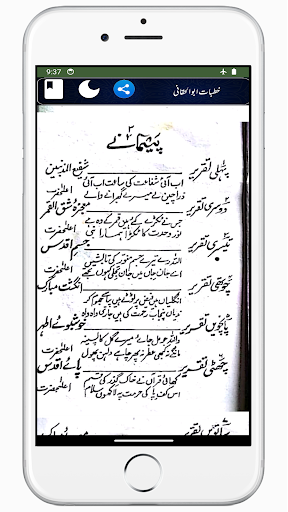 9:37
خطبات ابوالحقانی
۲
پیمانے
پہلی تقریر شفیع المذنبین
اب آئی شفاعت کی ساعت اب آئی
ذرا چین لے میرے گھبرانے والے
اعلیٰحضرت
دوسری تقریر معجزہ شق القمر
جس نے ٹکڑے کیے ہیں قمر کے وہ ہے
نور وحدت کا ٹکڑا ہمارا نبی
اعلیٰحضرت
تیسری تقریر جسم اقدس
اللہ رے تیرے جسم منور کی تابشیں
اے جان جاں میں جان تجلی کہوں تجھے
اعلیٰحضرت
چوتھی تقریر انگشت مبارک
انگلیاں ہیں فیض پر ٹوٹے ہیں پیاسے جھوم کر
ندیاں پنجاب رحمت کی ہیں جاری واہ واہ
اعلیٰحضرت
پانچویں تقریر خوشبوئے اطہر
واللہ جو مل جائے میرے گل کا پسینہ
مانگے نہ کبھی عطر نہ پھر چاہے دلہن پھول
اعلیٰحضرت
چھٹی تقریر پائے اقدس
کھائی قرآں نے خاک گزر کی قسم
اس کف پا کی حرمت پہ لاکھوں سلام
اعلیٰحضرت